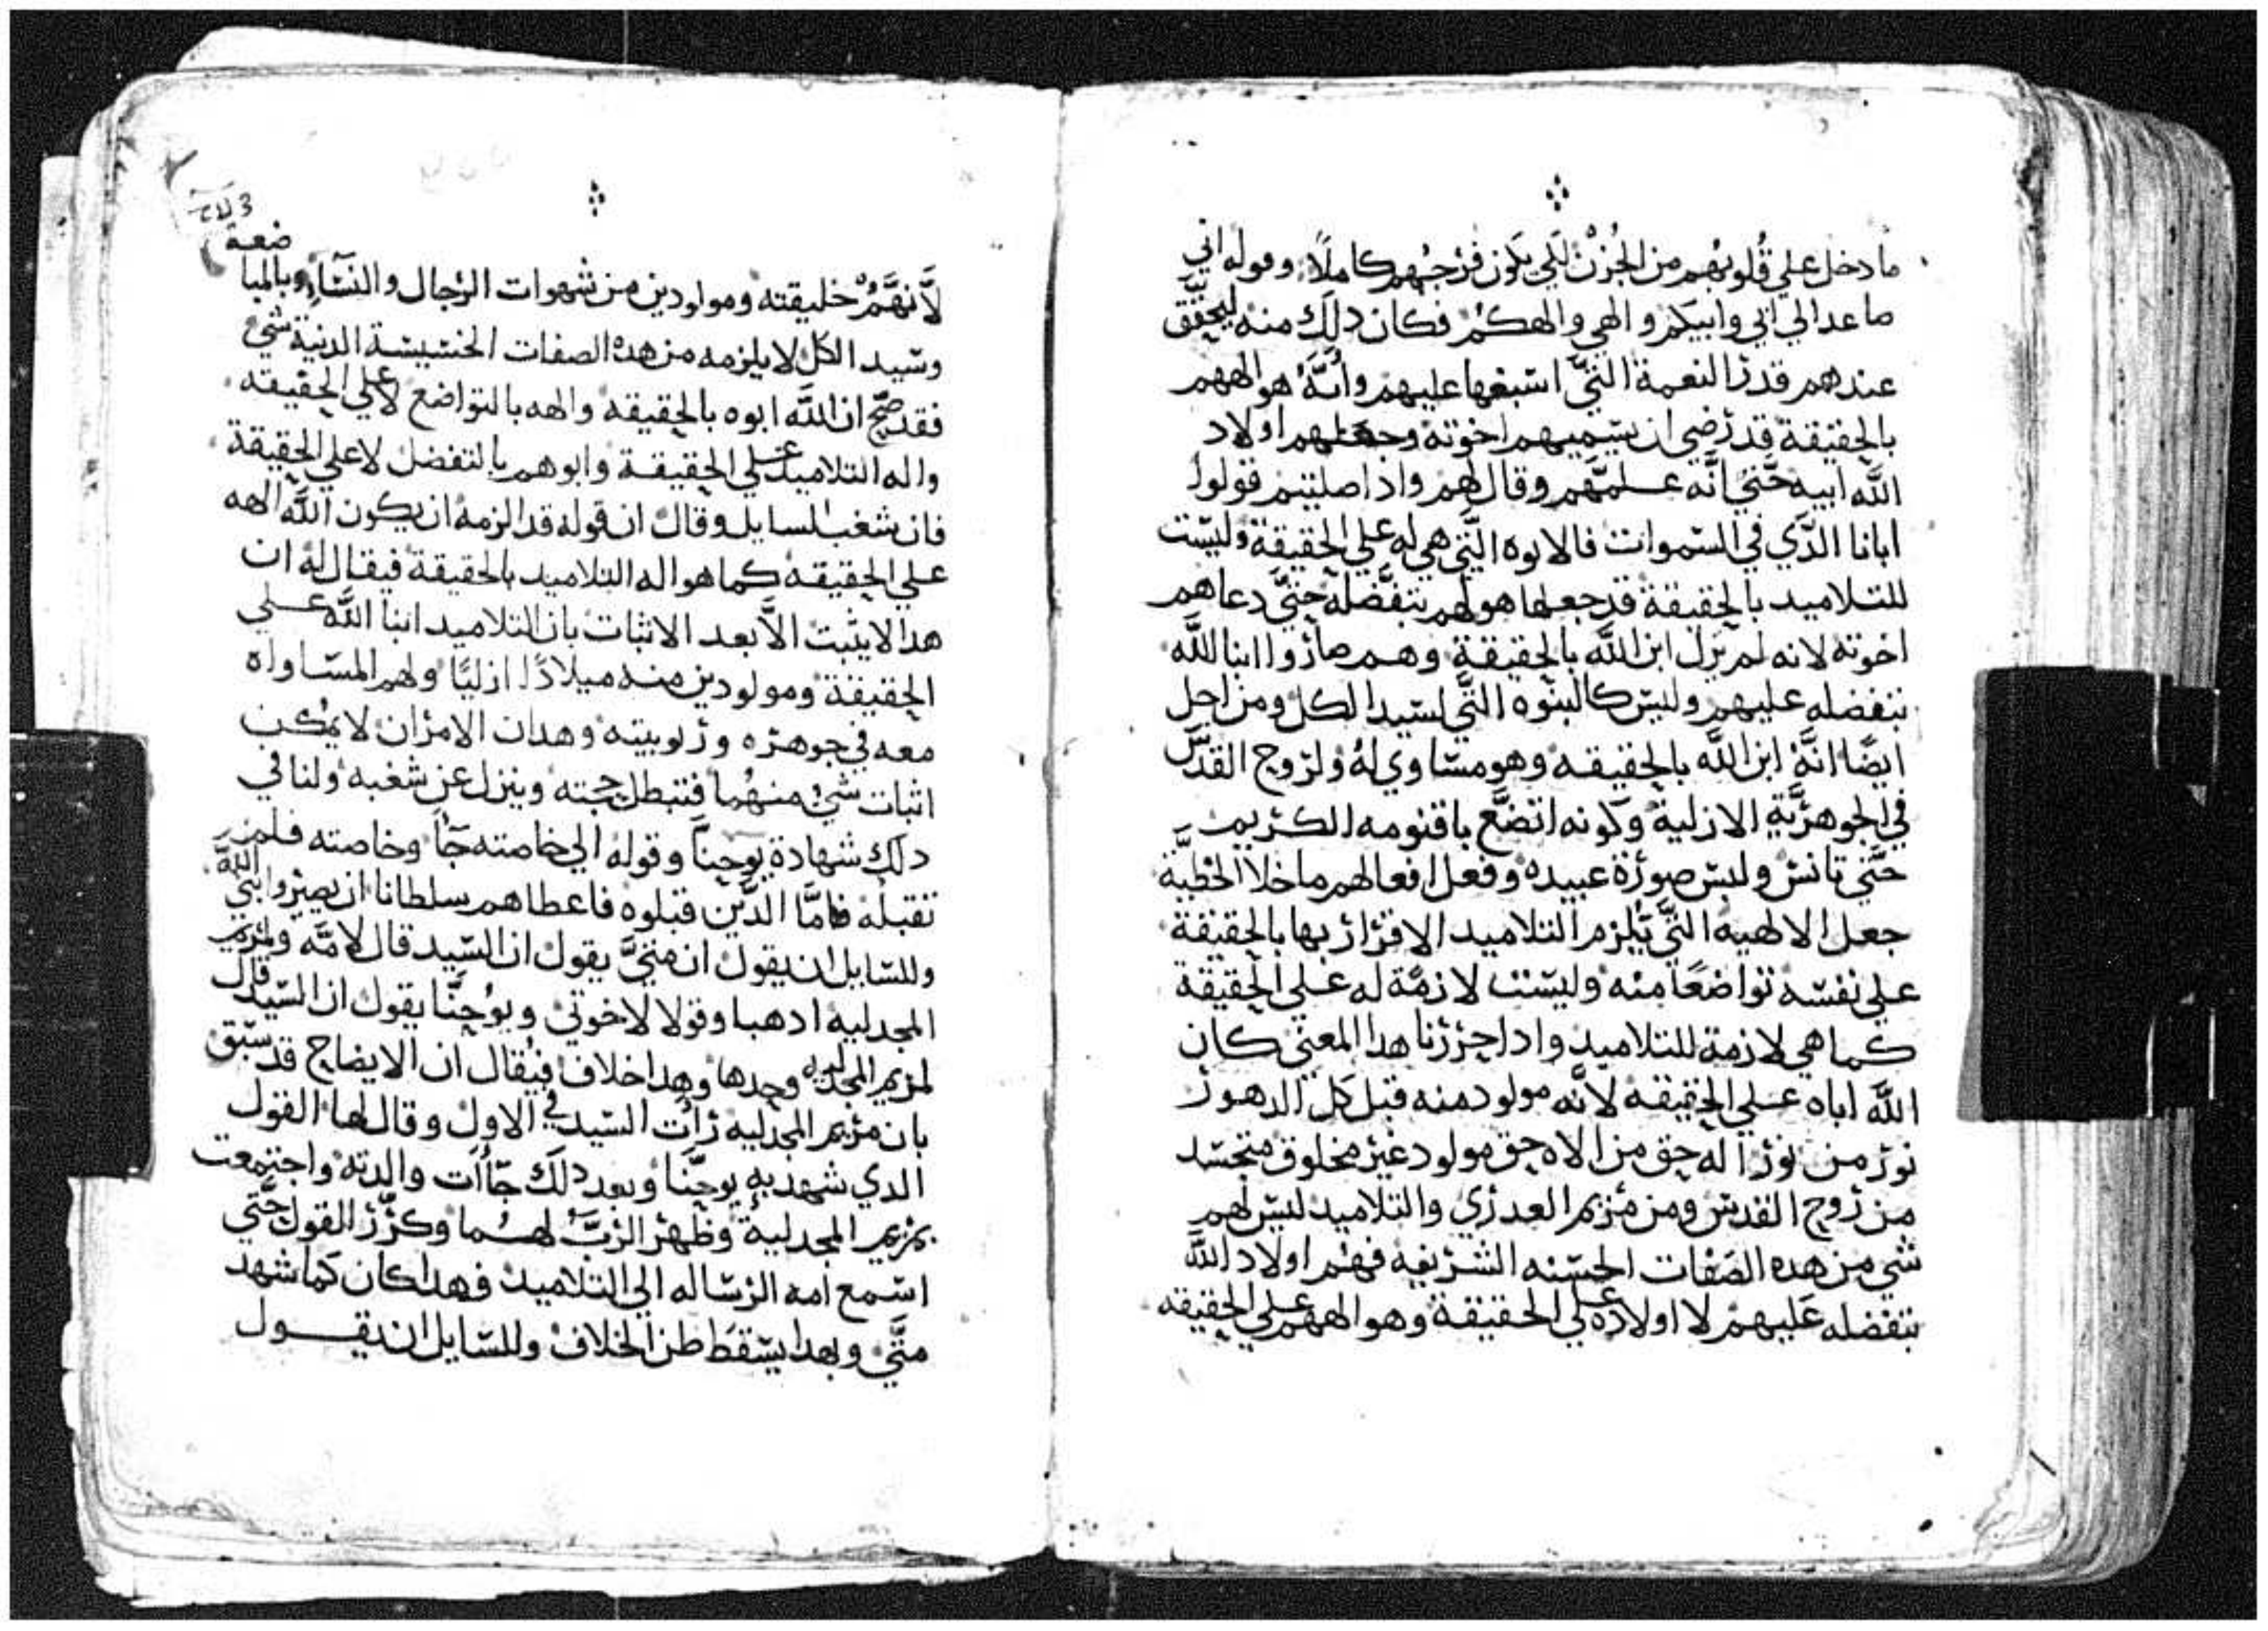 ما دخل علي قُلوبهم من الحُزن لكي يكون فرحهم كاملاً وقوله اني
ماعد الي ابي وابيكم والهي والهكم فكان دلك منه ليحقّق
عندهم قدر النعمة التيّ اسبغها عليهم وأنّهُ هو الههم
بالحقيقة قد رضي ان يسميهم اخوته وجعلهم اولاد
اللّه ابيه حتّي انّه علمّهم وقال لهم واذا صليتم قولوا
ابانا الدّي في السموات فالابوه التّي هي له علي الحقيقة وليست
للتلاميد بالحقيقة قد جعلها هو لهم بتفضّله حتيّ دعاهم
اخوته لانه لم يزل ابن اللّه بالحقيقة وهم صاروا ابنا اللّه
بتفضله عليهم وليس كالبنوه التّي لسيد الكل ومن اجل
ايضًا انّهُ ابن اللّه بالحقيقه وهو مساوي لهُ ولروح القدس
في الجوهريّة الازلية وكونه اتضّع باقنومه الكريم
حتّي تانس ولبس صورة عبيده وفعل افعالهم ما خلا الخطيّة
جعل الالهيه التّي يلزم التلاميد الاقرار بها بالحقيقة
علي نفسه تواضعًا منه وليست لازمة له علي الحقيقة
كما هي لازمة للتلاميد واداحررنا هدا المعني كان
اللّه اباه علي الحقيقه لانّه مولود منه قبل كل الدهور
نور من نور اله حق من الاه حق مولود غير مخلوق متجسد
من روح القدس ومن مريم العدري والتلاميد ليس لهم
شي من هده الصفات الحسنه الشريفه فهم اولاد اللّه
بتفضله عليهم لا اولاده علي الحقيقة وهو الههم علي الحقيقه
لاّنهّمُ خليقته ومولودين من شهوات الرجال والنسآء وبالمبا
ضعة
وسيد الكل لا يلزمه من هده الصفات الخسيسة الدنية شيء
فقد صحّ ان اللّه ابوه بالحقيقه والهه بالتواضع لا علي الحقيقه
واله التلاميد علي الحقيقة وابوهم بالتفضل لا علي الحقيقة
فان شغب السايل وقال ان قوله قد الزمه ان يكون اللّه الهه
علي الحقيقه كما هو اله التلاميد بالحقيقة فيقال له ان
هدا لا يثبت الاّ بعد الاثبات بان التلاميد ابنا اللّه علي
الحقيقة ومولودين منه ميلادًا ازليًا ولهم المساواه
معه في جوهره وربوبيته وهدان الامران لا يمُكن
اثبات شيء منهُما فتبطل حجته وينزل عن شغبه ولنا في
دلك شهادة يوحناّ وقوله الي خاصته جآ وخاصته فلم
تقبله فامّا الدّين قبلوه فاعطاهم سلطانا ان يصيروا بني اللّه
وللسايل ان يقول ان متيّ يقول ان السيد قال لامّه ولمريم
المجدليه ادهبا وقولا لاخوتي ويوُحنّا يقول ان السيد قال
لمريم المجدليه وحدها وهدا خلاف فيُقال ان الايضاح قد سبق
بان مريم المجدليه رأت السيد في الاول وقال لها القول
الدي شهد به يوحنّا وبعد دلك جآءت والدته واجتمعت
بمريم المجدلية وظهر الربّ لهُما وكرّر القول حتّي
اسمع امه الرساله الي التلاميد فهدا كان كما شهد
متّي وبهدا يسقط ظن الخلاف وللسايل ان يقول